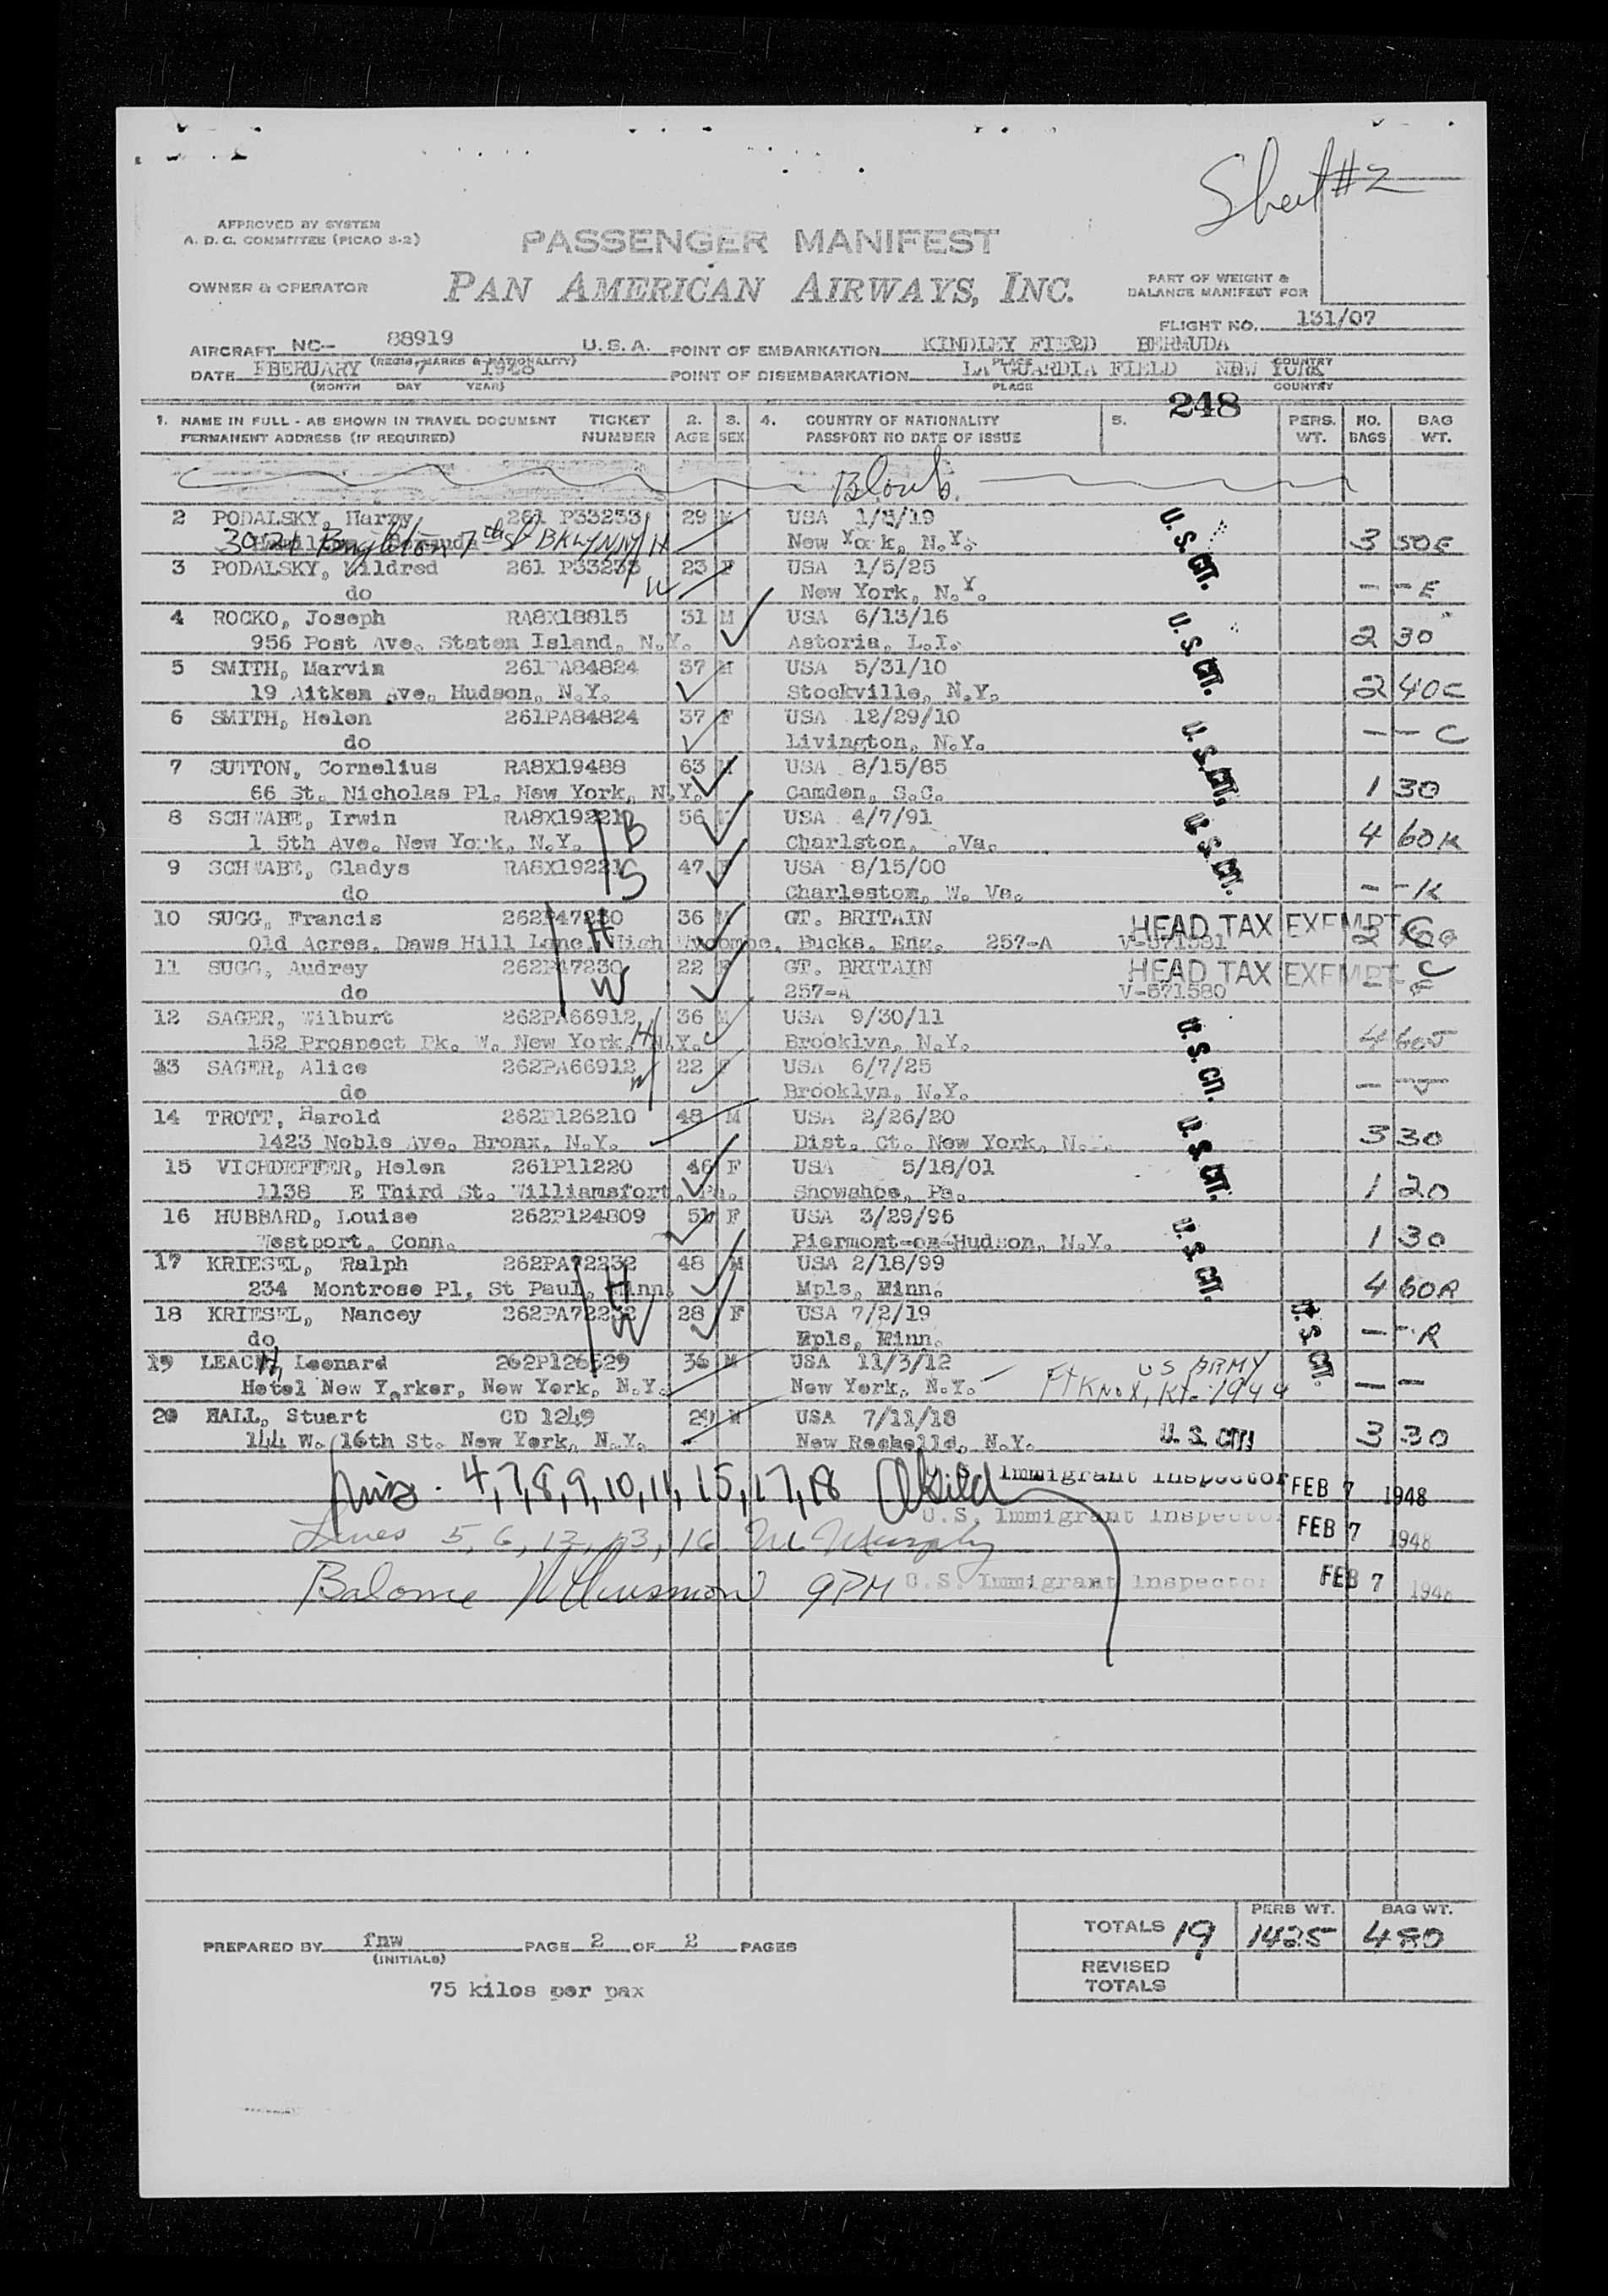 Sheet #2
APPROVED BY SYSTEM
A. D. C. COMMITTEE (PICAO 3-2)
PASSENGER MANIFEST
OWNER & OPERATOR PAN AMERICAN AIRWAYS, INC.
PART OF WEIGHT &
BALANCE MANIFEST FOR
FLIGHT NO. 131/07
AIRCRAFT NC- 88919 U.S.A. POINT OF EMBARKATION KINDLEY FIELD BERMUDA
(REGIS. MARKS & NATIONALITY) PLACE COUNTRY
DATE FBERUARY 7 1948 POINT OF DISEMBARKATION LA GUARDIA FIELD NEW YORK
(MONTH DAY YEAR) PLACE COUNTRY
248
1. NAME IN FULL - AS SHOWN IN TRAVEL DOCUMENT TICKET 2. 3. 4. COUNTRY OF NATIONALITY 5. PERS. NO. BAG
PERMANENT ADDRESS (IF REQUIRED) NUMBER AGE SEX PASSPORT NO DATE OF ISSUE WT. BAGS WT.
2 PODALSKY, Harry 261 P33253 29 M USA 1/5/19
3021 Brighton 7th St BKLYN NY H New York, N.Y. U.S. CIT. 3 50E
3 PODALSKY, Mildred 261 P33253 23 F USA 1/5/25
do W New York, N.Y. - - E
4 ROCKO, Joseph RA8X18815 31 M USA 6/13/16
956 Post Ave. Staten Island, N.Y. Astoria, L.I. U.S. CIT. 2 30
5 SMITH, Marvin 261PA84824 37 M USA 5/31/10
19 Aitken Ave. Hudson, N.Y. Stockville, N.Y. 2 40C
6 SMITH, Helen 261PA84824 37 F USA 12/29/10
do Livington, N.Y. - - C
7 SUTTON, Cornelius RA8X19488 63 M USA 8/15/85
66 St. Nicholas Pl. New York, N.Y. Camden, S.C. U.S. CIT. 1 30
8 SCHWABE, Irwin RA8X19221 B 56 USA 4/7/91
1 5th Ave. New York, N.Y. Charlston, .Va. U.S. CIT. 4 60K
9 SCHWABE, Gladys RA8X19221 S 47 F USA 8/15/00
do Charleston, W. Va. - - K
10 SUGG, Francis 262P47230 H 36 M GT. BRITAIN HEAD TAX EXEMPT
Old Acres, Daws Hill Lane, High Wycombe, Bucks. Eng. 257-A V-571581 2
11 SUGG, Audrey 262P47230 W 22 F GT. BRITAIN HEAD TAX EXEMPT C
do 257-A V-571580
12 SAGER, Wilburt 262PA66912 36 M USA 9/30/11
152 Prospect Pk. W. New York, N.Y. H Brooklyn, N.Y. U.S. CIT. 4 60J
13 SAGER, Alice 262PA66912 22 F USA 6/7/25
do W Brooklyn, N.Y. - - J
14 TROTT, Harold 262P126210 48 M USA 2/26/20
1423 Noble Ave. Bronx, N.Y. Dist. Ct. New York, N.Y. U.S. CIT. 3 30
15 VICHDEFFER, Helen 261P11220 46 F USA 5/18/01
1138 E Third St. Williamsfort, Pa. Snowshoe, Pa. 1 20
16 HUBBARD, Louise 262P124809 51 F USA 3/29/96
Westport, Conn. Piermont-on-Hudson, N.Y. U.S. CIT. 1 30
17 KRIESEL, Ralph 262PA72232 H 48 M USA 2/18/99
234 Montrose Pl, St Paul, Minn. Mpls, Minn. 4 60R
18 KRIESEL, Nancey 262PA72232 W 28 F USA 7/2/19
do Mpls, Minn. U.S. CIT. - - R
19 LEACH, Leonard 262P126529 36 M USA 11/3/12 US ARMY
Hotel New Yorker, New York, N.Y. New York, N.Y. Ft Knox, Ky. 1944 - -
20 HALL, Stuart CD 1249 29 M USA 7/11/18
144 W. 16th St. New York, N.Y. New Rochelle, N.Y. U. S. CIT. 3 30
4, 7, 8, 9, 10, 11, 15, 17, 18 Immigrant Inspector FEB 7 1948
Lines 5, 6, 12, 13, 16 M Murphy U.S. Immigrant Inspector FEB 7 1948
9PM U.S. Immigrant Inspector FEB 7 1948
PERS WT. BAG WT.
TOTALS 19 1425 480
PREPARED BY fnw PAGE 2 OF 2 PAGES
(INITIALS)
REVISED
TOTALS
75 kilos per pax